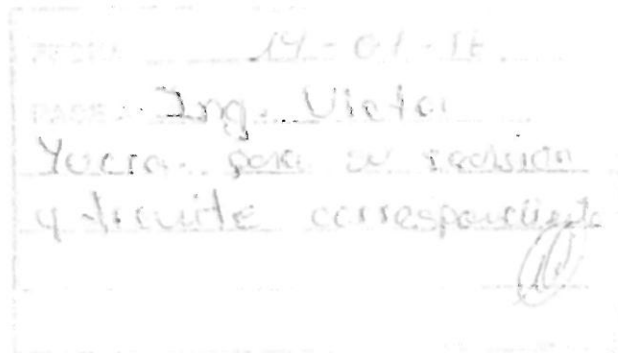 FECHA 19-01-16
PASE A: Ing. Victor
Yucra para su revisión
y tramite correspondiente